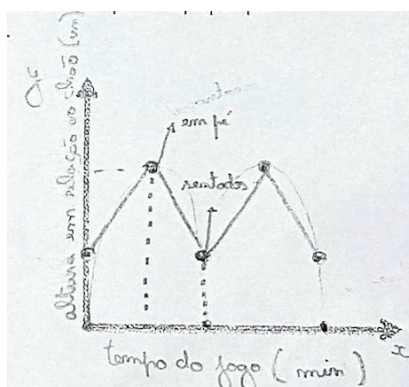 altura em relação ao chão (m)
em pé
sentados
x
tempo do jogo (min)